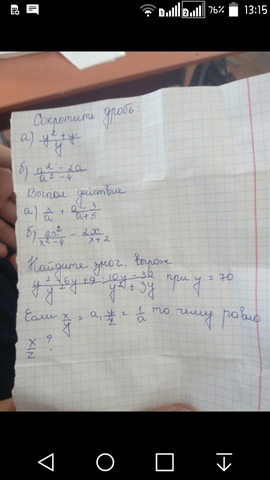 76% 13:15
Сократить дробь:
а) y²+y / y
б) a²-2a / a²-4
Выпол действие
а) / a + a-3 / a+5
б) 2x² / x²-4 - 2x / x+2
Найдите знач. выраж
y²-6y+9 / y²-9 : 10y-30 / y²+3y при y = 70
Если x/y = a, y/z = 1/a то чему равно
x/z ?